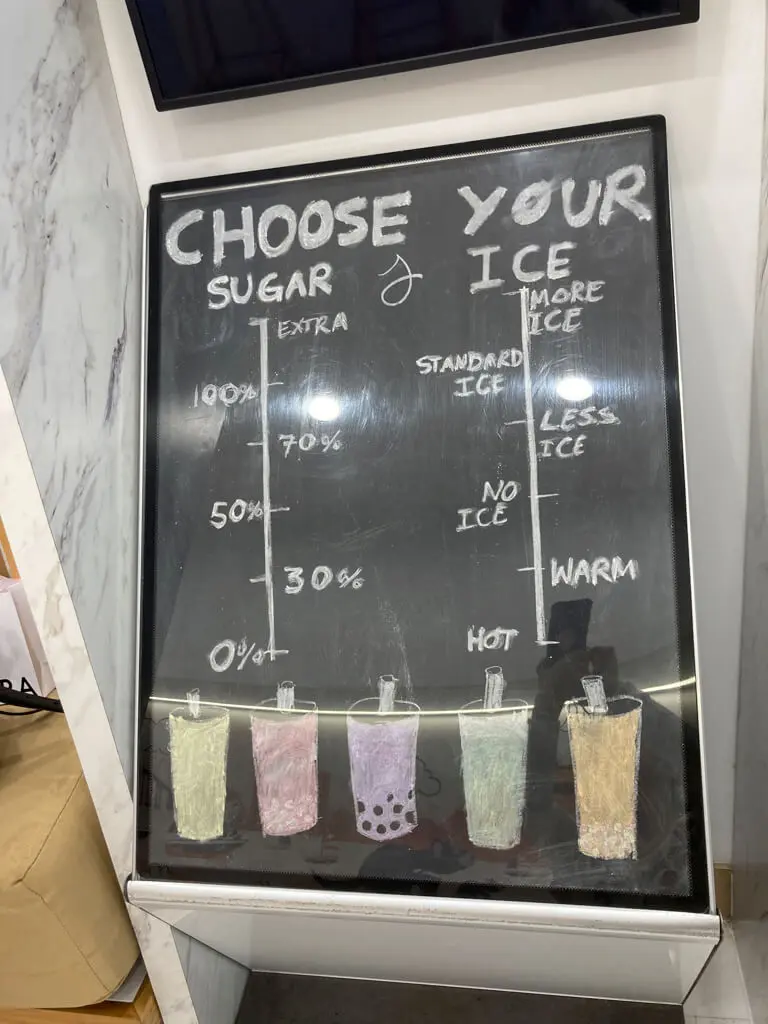 CHOOSE YOUR
SUGAR & ICE
EXTRA
100%
70%
50%
30%
0%
MORE
ICE
STANDARD
ICE
LESS
ICE
NO
ICE
WARM
HOT
RA